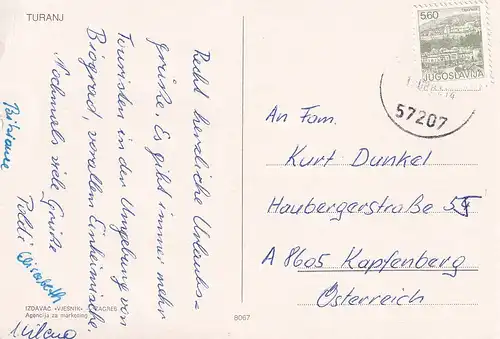 TURANJ
Recht herzliche Urlaubs=
grüße. Es gibt immer mehr
Touristen in der Umgebung von
Biograd, vorallem Einheimische.
Nochmals viele Grüße
Poldi Elisabeth
IZDAVAČ «VJESNIK» ZAGREB
Agencija za marketing
8067
5.60
JUGOSLAVIJA
57207
An Fam.
Kurt Dunkel
Haubergerstraße
A 8605 Kapfenberg
Österreich